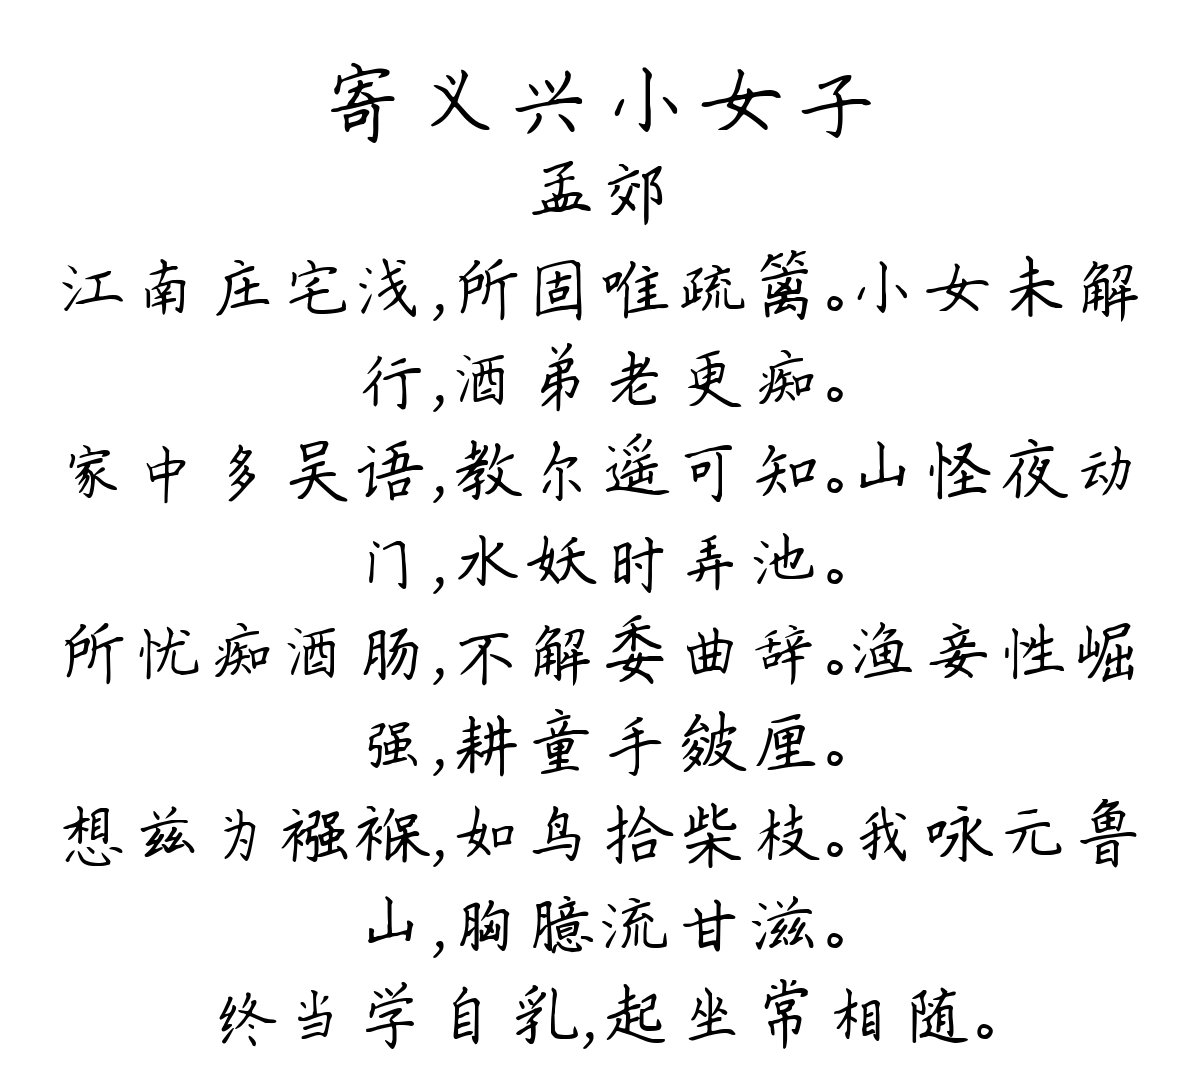 寄义兴小女子
孟郊
江南庄宅浅,所固唯疏篱。小女未解
行,酒弟老更痴。
家中多吴语,教尔遥可知。山怪夜动
门,水妖时弄池。
所忧痴酒肠,不解委曲辞。渔妾性崛
强,耕童手皴厘。
想兹为襁褓,如鸟拾柴枝。我咏元鲁
山,胸臆流甘滋。
终当学自乳,起坐常相随。